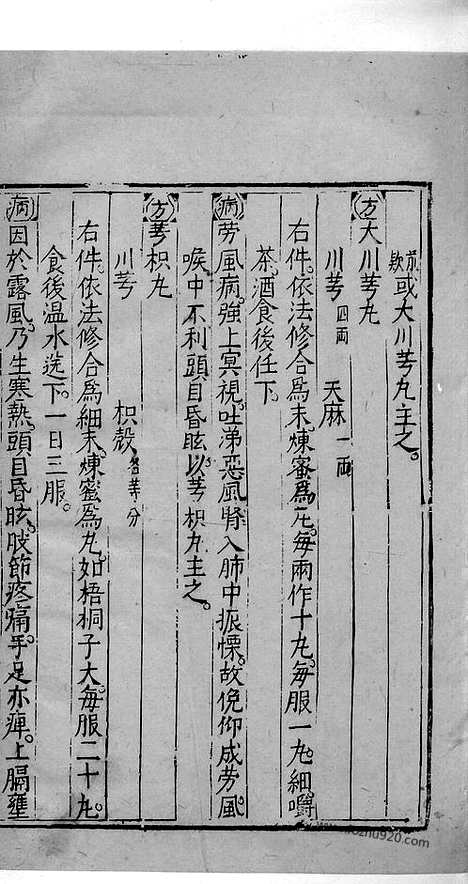 煎飲或大川芎丸主之。
方 大川芎丸
川芎 四両 天麻 一両
右件。依法修合爲末。煉蜜爲丸。每兩作十丸。每服一丸。細嚼
茶。酒食後任下。
病 劳風病。強上冥視。吐涕惡風。腎入肺中振慄。故俛仰成劳風。
喉中不利頭目昏眩以芎枳丸主之。
方 芎枳丸
川芎 枳殼 各等分
右件。依法修合爲細末。煉蜜爲丸。如梧桐子大。每服二十丸。
食後温水送下。一日三服。
病 因於露風。乃生寒熱。頭目昏眩。肢節疼痛。手足亦痺。上膈壅